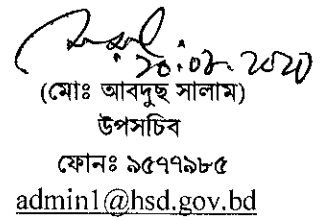 ২০.০২.২০২০
(মোঃ আবদুছ সালাম)
উপসচিব
ফোনঃ ৯৫৭৭৯৮৫
admin1@hsd.gov.bd